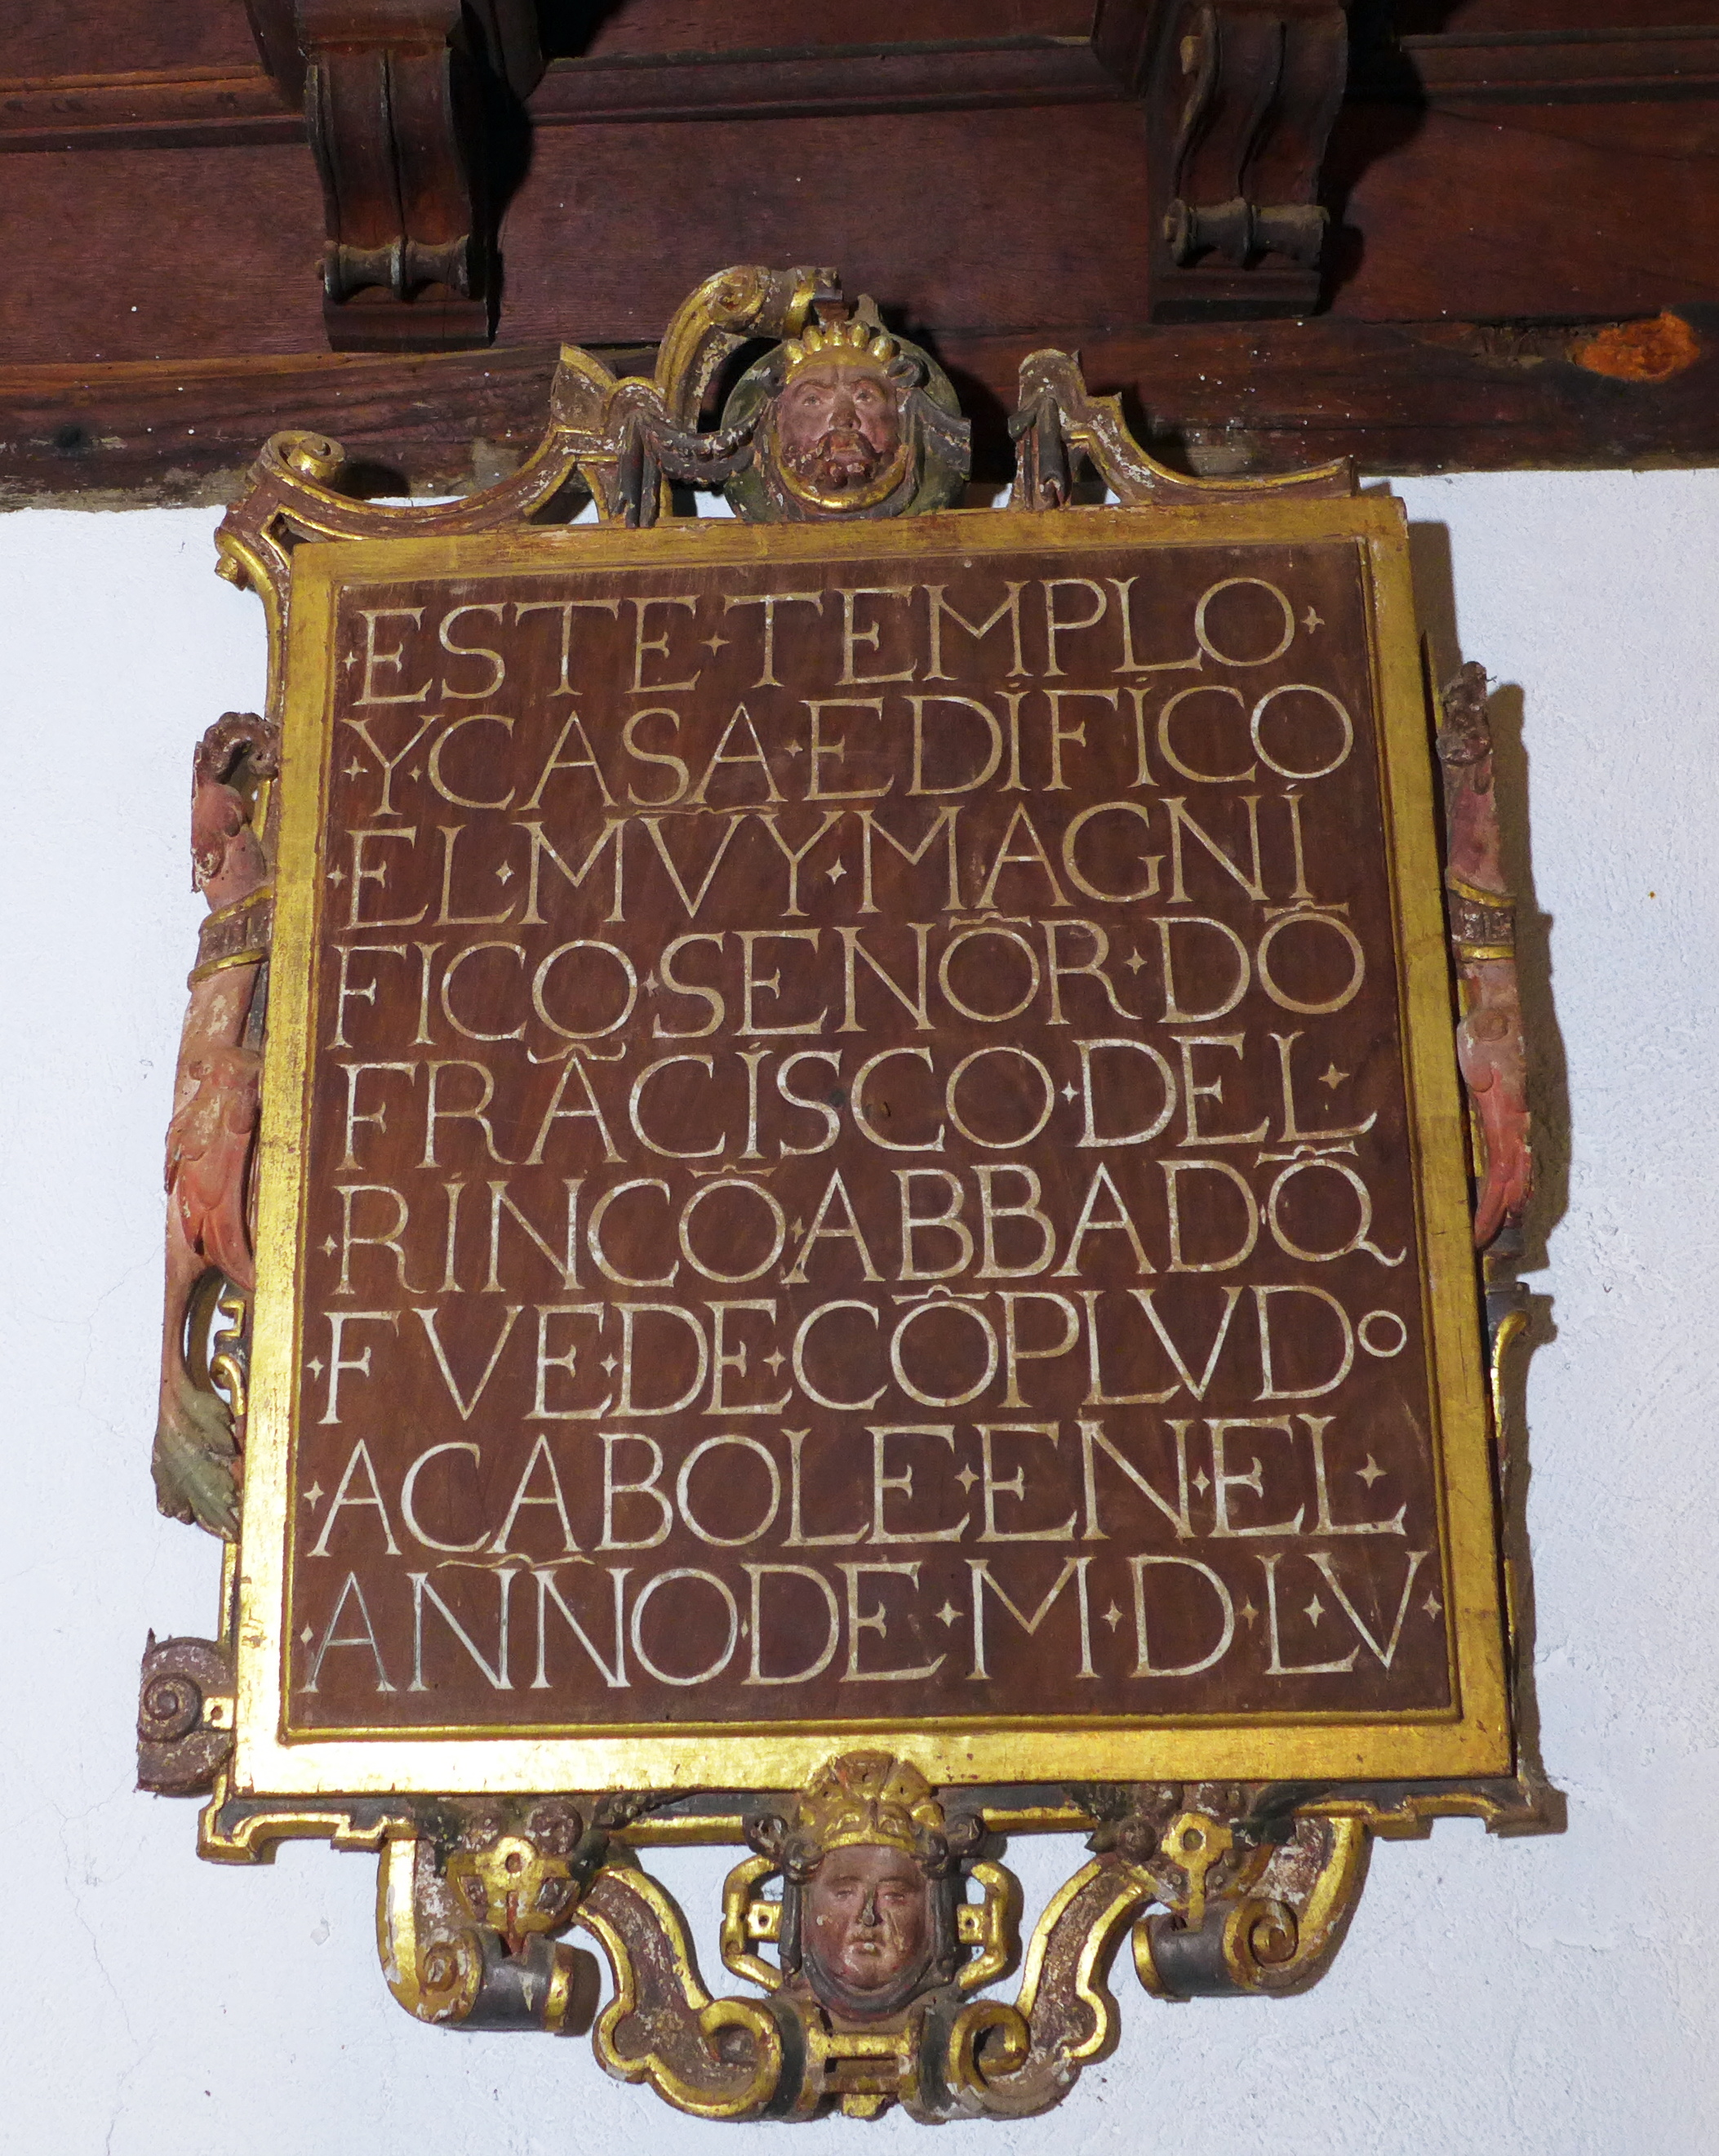 ·ESTE·TEMPLO·
·Y·CASA·EDIFICO
·EL·MVY·MAGNI
FICO·SEÑOR·DÕ
FRÃCISCO·DEL·
·RINCÕ·ABBAD·Q̃
·FVE·DE·CÕPLVDº
·ACABOLE·EN·EL·
·AÑNO·DE·M·D·L·V·